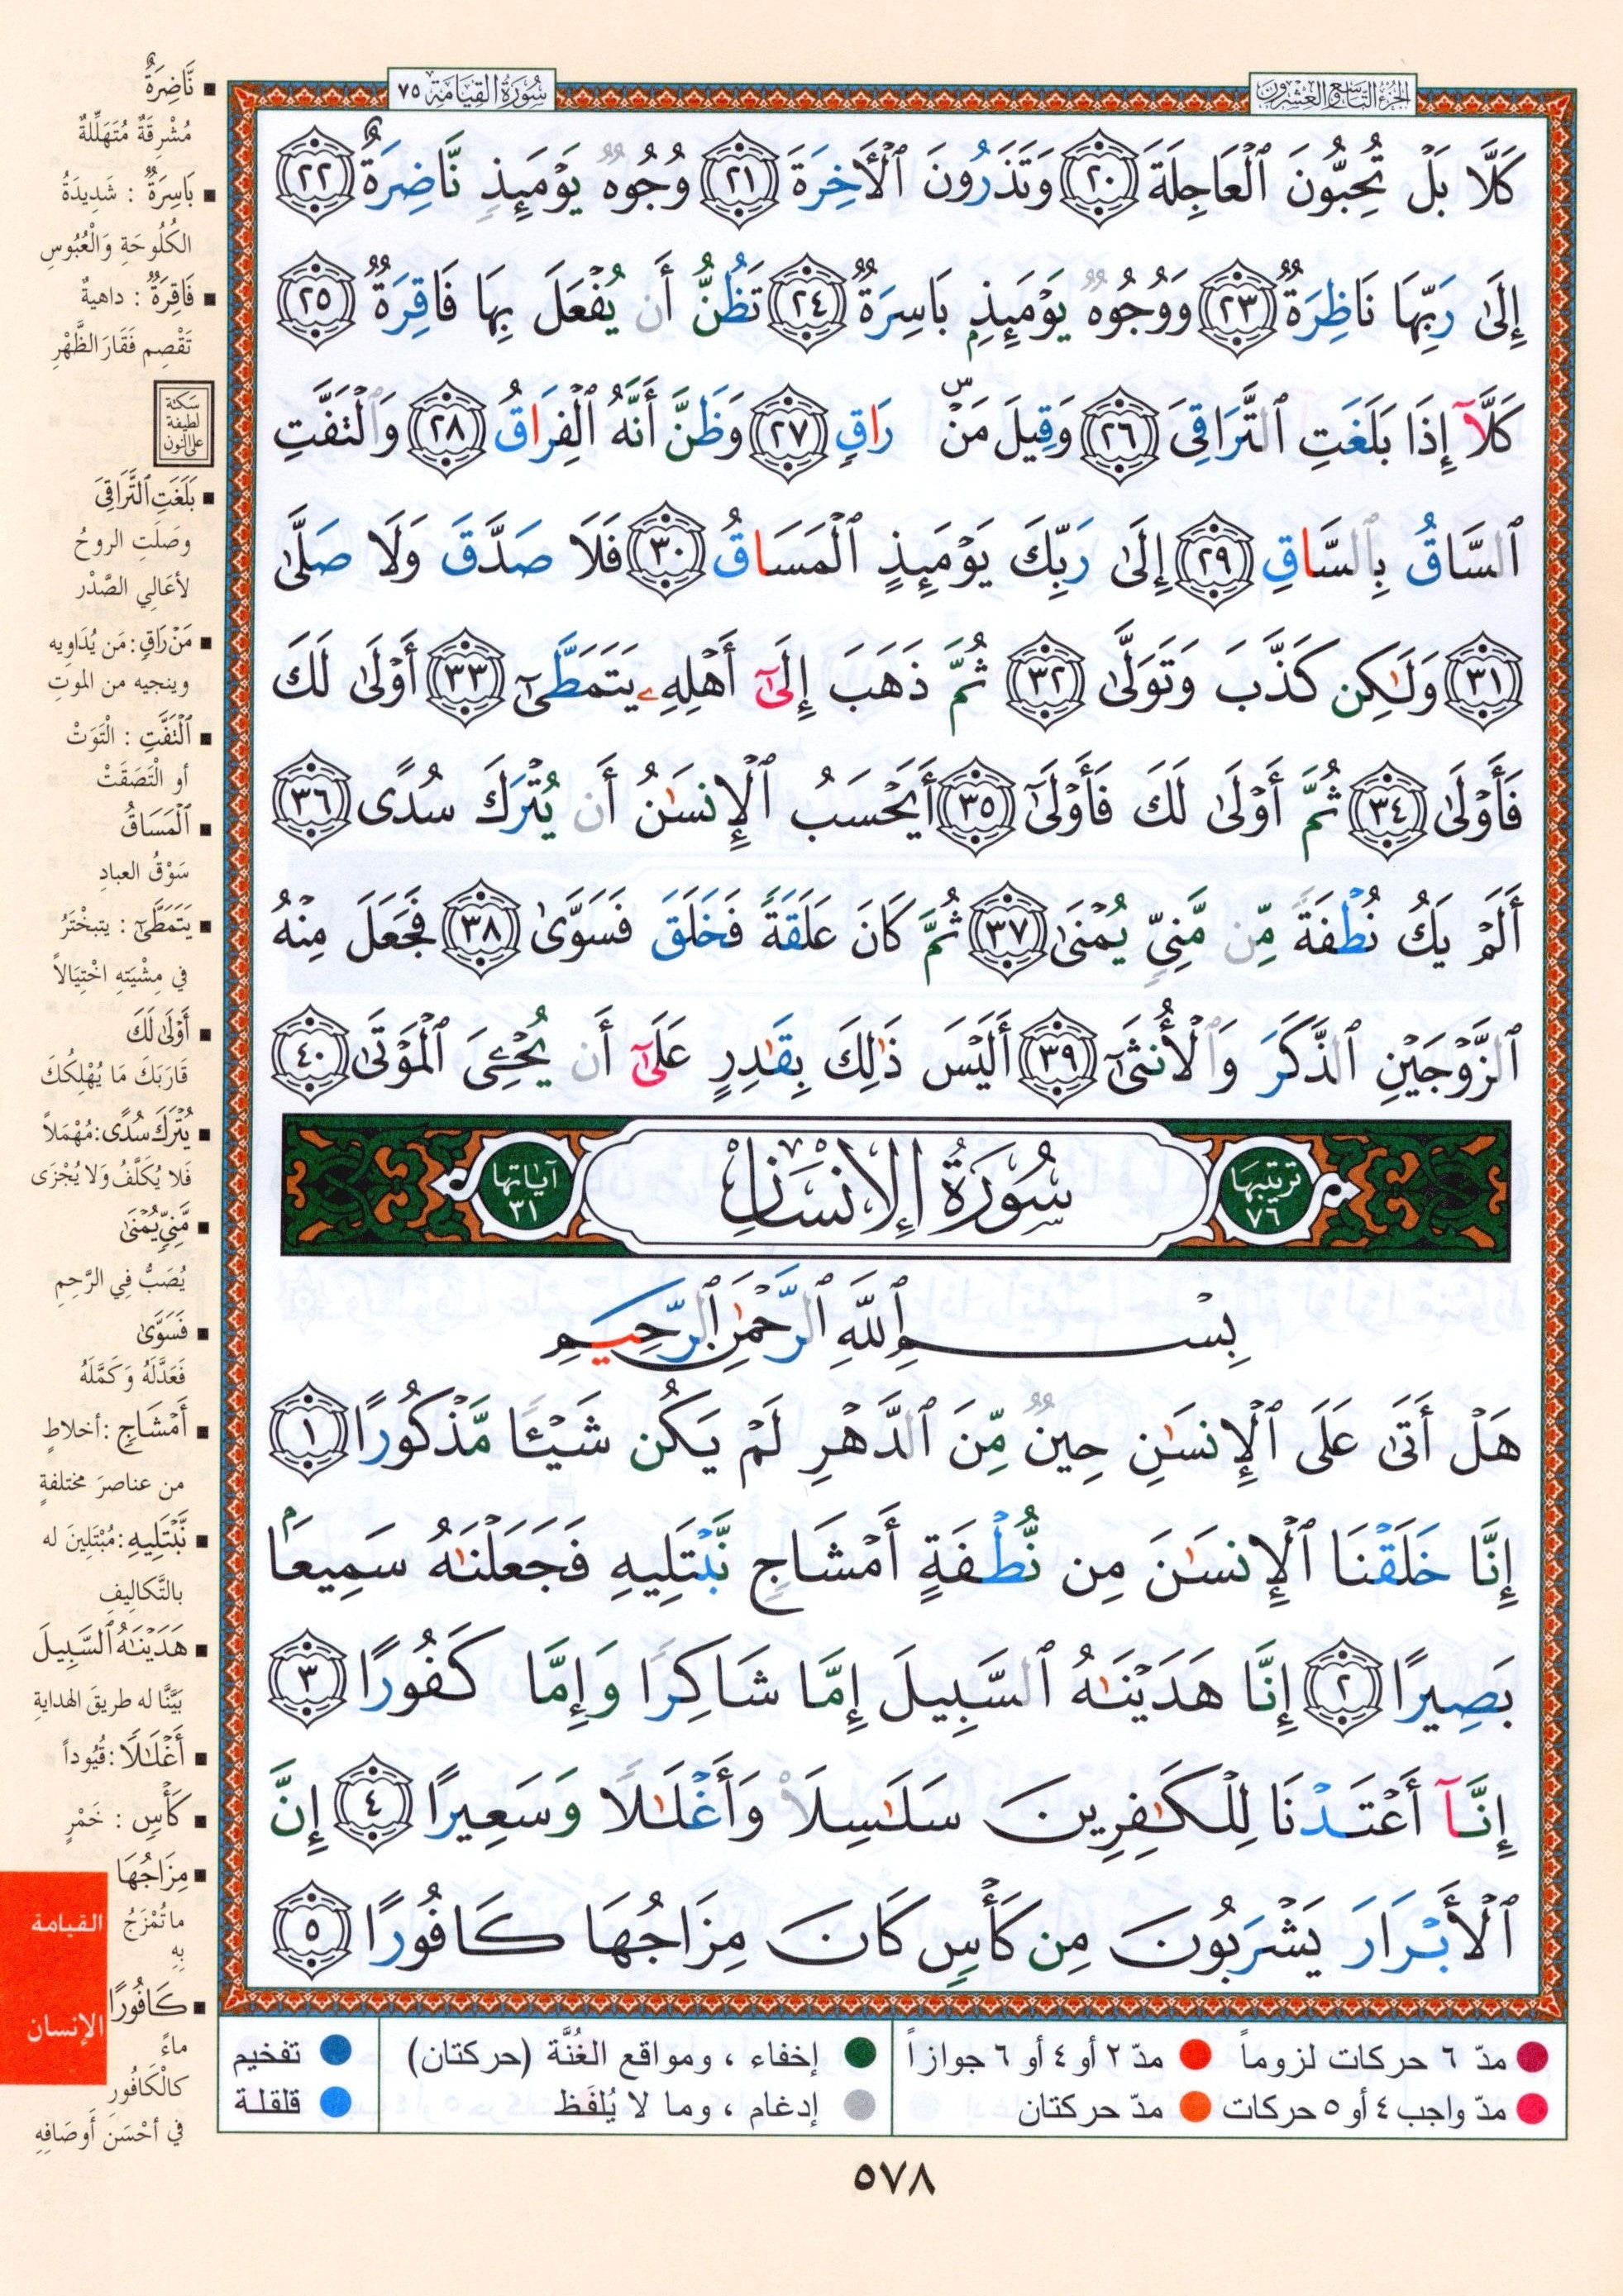 سُورَةُ القِيَامَة ٧٥
الجزء التاسع والعشرون
كَلَّا بَلْ تُحِبُّونَ ٱلْعَاجِلَةَ ٢٠ وَتَذَرُونَ ٱلْأَخِرَةَ ٢١ وُجُوهٌ يَوْمَئِذٍ نَّاضِرَةٌ ٢٢
إِلَىٰ رَبِّهَا نَاظِرَةٌ ٢٣ وَوُجُوهٌ يَوْمَئِذٍۭ بَاسِرَةٌ ٢٤ تَظُنُّ أَن يُفْعَلَ بِهَا فَاقِرَةٌ ٢٥
كَلَّآ إِذَا بَلَغَتِ ٱلتَّرَاقِىَ ٢٦ وَقِيلَ مَنْۜ رَاقٍ ٢٧ وَظَنَّ أَنَّهُ ٱلْفِرَاقُ ٢٨ وَٱلْتَفَّتِ
ٱلسَّاقُ بِٱلسَّاقِ ٢٩ إِلَىٰ رَبِّكَ يَوْمَئِذٍ ٱلْمَسَاقُ ٣٠ فَلَا صَدَّقَ وَلَا صَلَّىٰ
٣١ وَلَٰكِن كَذَّبَ وَتَوَلَّىٰ ٣٢ ثُمَّ ذَهَبَ إِلَىٰٓ أَهْلِهِۦ يَتَمَطَّىٰٓ ٣٣ أَوْلَىٰ لَكَ
فَأَوْلَىٰ ٣٤ ثُمَّ أَوْلَىٰ لَكَ فَأَوْلَىٰٓ ٣٥ أَيَحْسَبُ ٱلْإِنسَٰنُ أَن يُتْرَكَ سُدًى ٣٦
أَلَمْ يَكُ نُطْفَةً مِّن مَّنِىٍّ يُمْنَىٰ ٣٧ ثُمَّ كَانَ عَلَقَةً فَخَلَقَ فَسَوَّىٰ ٣٨ فَجَعَلَ مِنْهُ
ٱلزَّوْجَيْنِ ٱلذَّكَرَ وَٱلْأُنثَىٰٓ ٣٩ أَلَيْسَ ذَٰلِكَ بِقَٰدِرٍ عَلَىٰٓ أَن يُحْۦِىَ ٱلْمَوْتَىٰ ٤٠
ترتيبها ٧٦
سُورَةُ الإِنْسَانِ
آياتها ٣١
بِسْمِ ٱللَّهِ ٱلرَّحْمَٰنِ ٱلرَّحِيمِ
هَلْ أَتَىٰ عَلَى ٱلْإِنسَٰنِ حِينٌ مِّنَ ٱلدَّهْرِ لَمْ يَكُن شَيْـًٔا مَّذْكُورًا ١
إِنَّا خَلَقْنَا ٱلْإِنسَٰنَ مِن نُّطْفَةٍ أَمْشَاجٍ نَّبْتَلِيهِ فَجَعَلْنَٰهُ سَمِيعَۢا
بَصِيرًا ٢ إِنَّا هَدَيْنَٰهُ ٱلسَّبِيلَ إِمَّا شَاكِرًا وَإِمَّا كَفُورًا ٣
إِنَّآ أَعْتَدْنَا لِلْكَٰفِرِينَ سَلَٰسِلَا۟ وَأَغْلَٰلًا وَسَعِيرًا ٤ إِنَّ
ٱلْأَبْرَارَ يَشْرَبُونَ مِن كَأْسٍ كَانَ مِزَاجُهَا كَافُورًا ٥
نَّاضِرَةٌ
مُشْرِقَةٌ مُتَهَلِّلَةٌ
بَاسِرَةٌ : شَدِيدَةُ
الكُلُوحَةِ وَالْعُبُوسِ
فَاقِرَةٌ : داهيةٌ
تَقْصِم فَقَارَ الظَّهْرِ
سكتة
لطيفة
على النون
بَلَغَتِ ٱلتَّرَاقِىَ
وصَلَتِ الروحُ
لأعَالِي الصَّدْر
مَنْ رَاقٍ : مَن يُدَاوِيه
وينجيه من الموتِ
ٱلْتَفَّتِ : الْتَوَتْ
أو الْتَصَقَتْ
ٱلْمَسَاقُ
سَوْقُ العبادِ
يَتَمَطَّىٰٓ : يتبخْتَرُ
في مِشْيَتِهِ اخْتِيَالاً
أَوْلَىٰ لَكَ
قَارَبَكَ مَا يُهْلِكُكَ
يُتْرَكَ سُدًى : مُهْمَلاً
فَلا يُكَلَّفُ وَلا يُجْزَى
مَّنِىٍّ يُمْنَىٰ
يُصَبُّ فِي الرَّحِمِ
فَسَوَّىٰ
فَعَدَّلَهُ وَكَمَّلَهُ
أَمْشَاجٍ : أخلاطٍ
من عناصرَ مختلفةٍ
نَّبْتَلِيهِ : مُبْتَلِينَ له
بالتَّكالِيفِ
هَدَيْنَٰهُ ٱلسَّبِيلَ
بَيَّنَّا له طريقَ الهدايةِ
أَغْلَٰلًا : قُيُوداً
كَأْسٍ : خَمْرٍ
مِزَاجُهَا
ما تُمْزَجُ
بِهِ
كَافُورًا
ماءً
كالْكَافُورِ
في أحْسَنِ أوصَافِهِ
القيامة
الإنسان
مدّ ٦ حركات لزوماً
مدّ ٢ أو ٤ أو ٦ جوازاً
إخفاء ، ومواقع الغُنَّة (حركتان)
تفخيم
مدّ واجب ٤ أو ٥ حركات
مدّ حركتان
إدغام ، وما لا يُلفَظ
قلقلة
٥٧٨